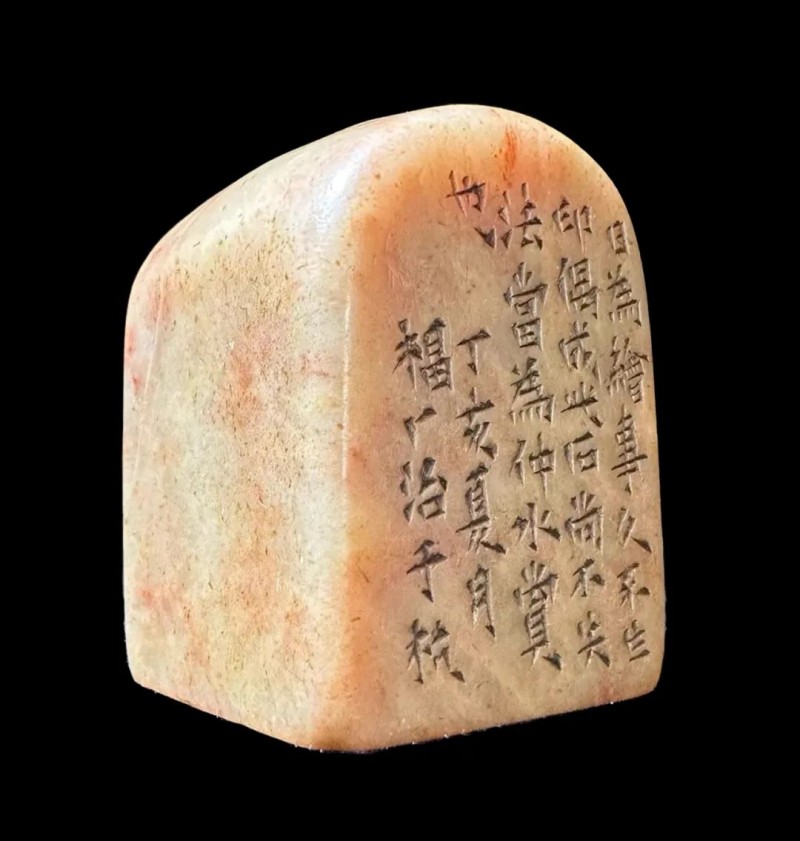 日為繪事久不作
印偶成此石尚不失
法當為仲水賞
也
丁亥夏月
福厂治于杭